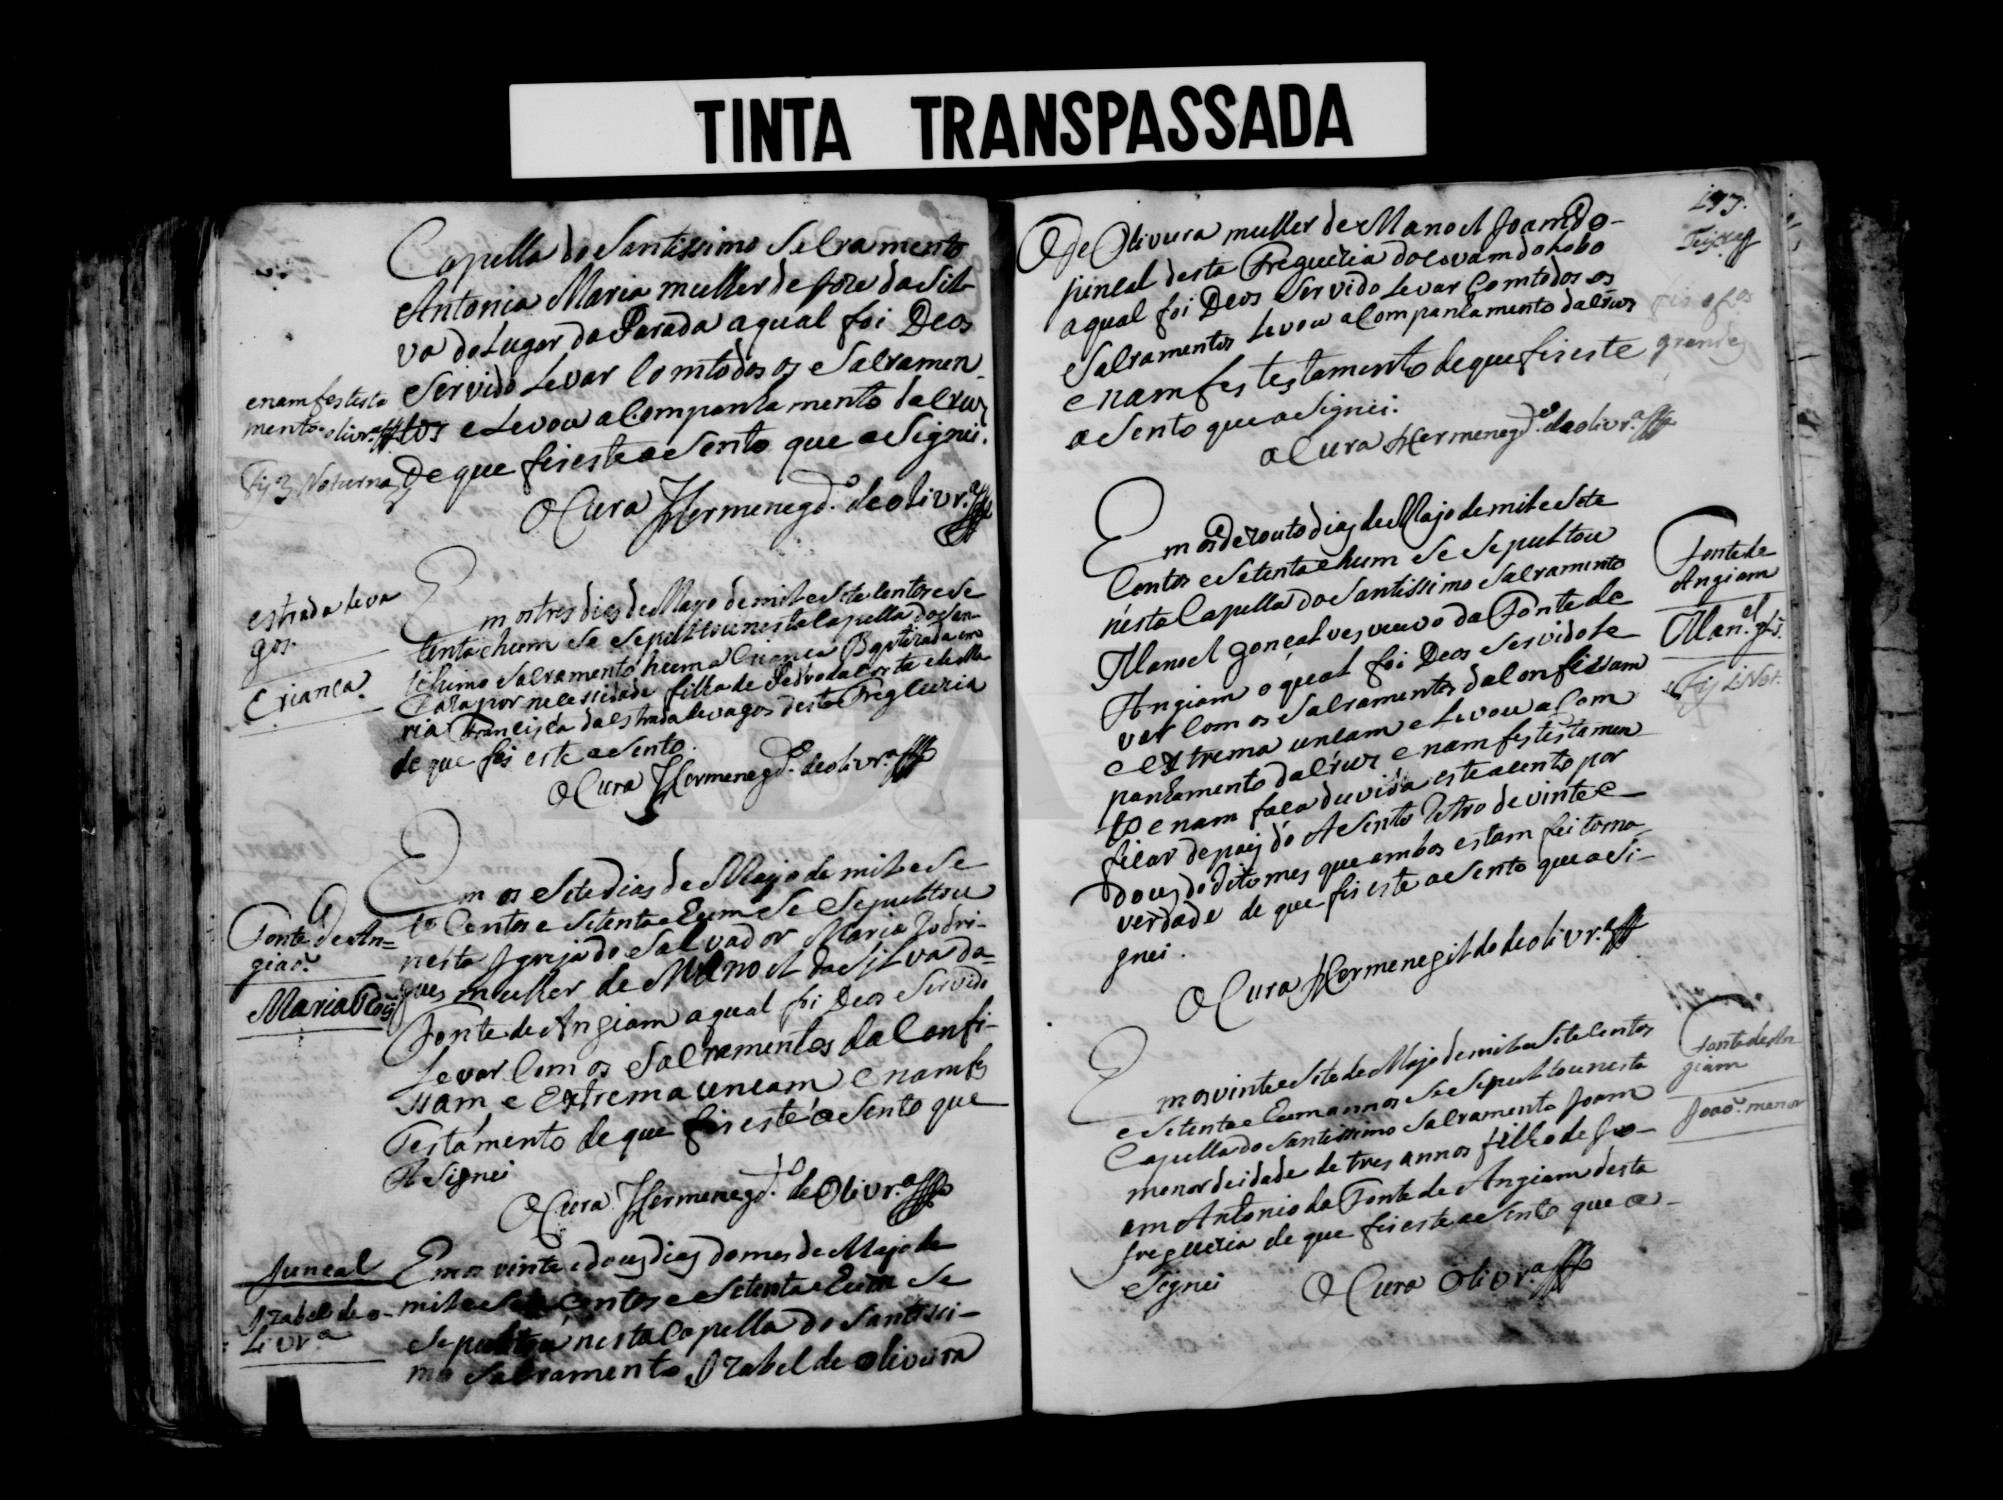 TINTA TRANSPASSADA
Capella do Santissimo Sacramento
Antonia Maria mulher de Joze da Sil-
va do Lugar da Parada a qual foi Deos
Servido Levar Com todos os Sacramen-
enam fes testa
mento. olivr.ª
tos e Levou a Companhamento da Crus
De que fis este aSento que aSignei.
Noturna
O Cura Hermenegd.º de olivr.ª
estrada leva
gos.
Crianca.
Em os tres dias de Mayo de mil eSete Centos eSe
tenta ehum Se Sepultou nesta Capella do San-
tissimo Sacramento huma Crianca Bautizada em
Caza por necessidade filha de Pedro da Costa e de Ma
ria Francisca da estrada levagos desta Freguezia
de que fis este aSento.
O Cura Hermenegd.º de olivr.ª
Fonte de An=
giaõ.
Maria Roiz
Em os Sete dias de Mayo de mil e Se
te Centos e Setenta e Eum Se Sepultou
nesta Igreja do Salvador Maria Rodri-
gues mulher de Manoel da Silva da=
Fonte de Angiam a qual foi Deos Servido
Levar Com os Sacramentos da Confi-
ssam, e Extrema uncam e nam fes
Testamento de que fis este aSento que
ASignei
O Cura Hermenegd.º de Olivr.ª
Juncal
Izabel de o-
Livr.ª
Em os vinte e dous dias do mes de Mayo de
mil e Sete Centos e Setenta e Eum Se
Sepultou nesta Capella do Santissi-
mo Sacramento, Izabel de oliveira
177.
de Oliveira mulher de Manoel Joam do-
juncal desta Freguezia do covam do Lobo
a qual foi Deos Servido Levar Com todos os
Sacramentos Levou a Companhamento da Crus
e nam fes testamento de que fis este grande
aSento que aSignei.
O Cura Hermenegd.º de olivr.ª
Fonte de
Angiam
Man.el glz.
Em os Dezouto dias de Mayo de mil e Sete
Centos e Setenta e hum Se Sepultou
nesta Capella do Santissimo Sacramento
Manoel gonçalves veuvo da Fonte de
Angiam o qual foi Deos Servido Le-
var Com os Sacramentos da Confissam
e extrema uncam e Levou a Com
panhamento da Crus e nam fes testamen
to e nam faca duvida este acento por
ficar depois do ASento Retro de vinte e
dous do dito mes que ambos estam fei torna
verdade de que fis este aSento que aSi-
gnei.
O Cura Hermenegildo de olivr.ª
Fonte de An
giam
Joaõ. menor
Em os vinte e Sete de Mayo de mil e Sete Centos
e Setenta e Eum annos Se Sepultou nesta
Capella do Santissimo Sacramento Joam
menor de idade de tres annos filho de Jo-
am Antonio da Fonte de Angiam desta
freguezia de que fis este aSento que a-
Signei
O Cura Olivr.ª